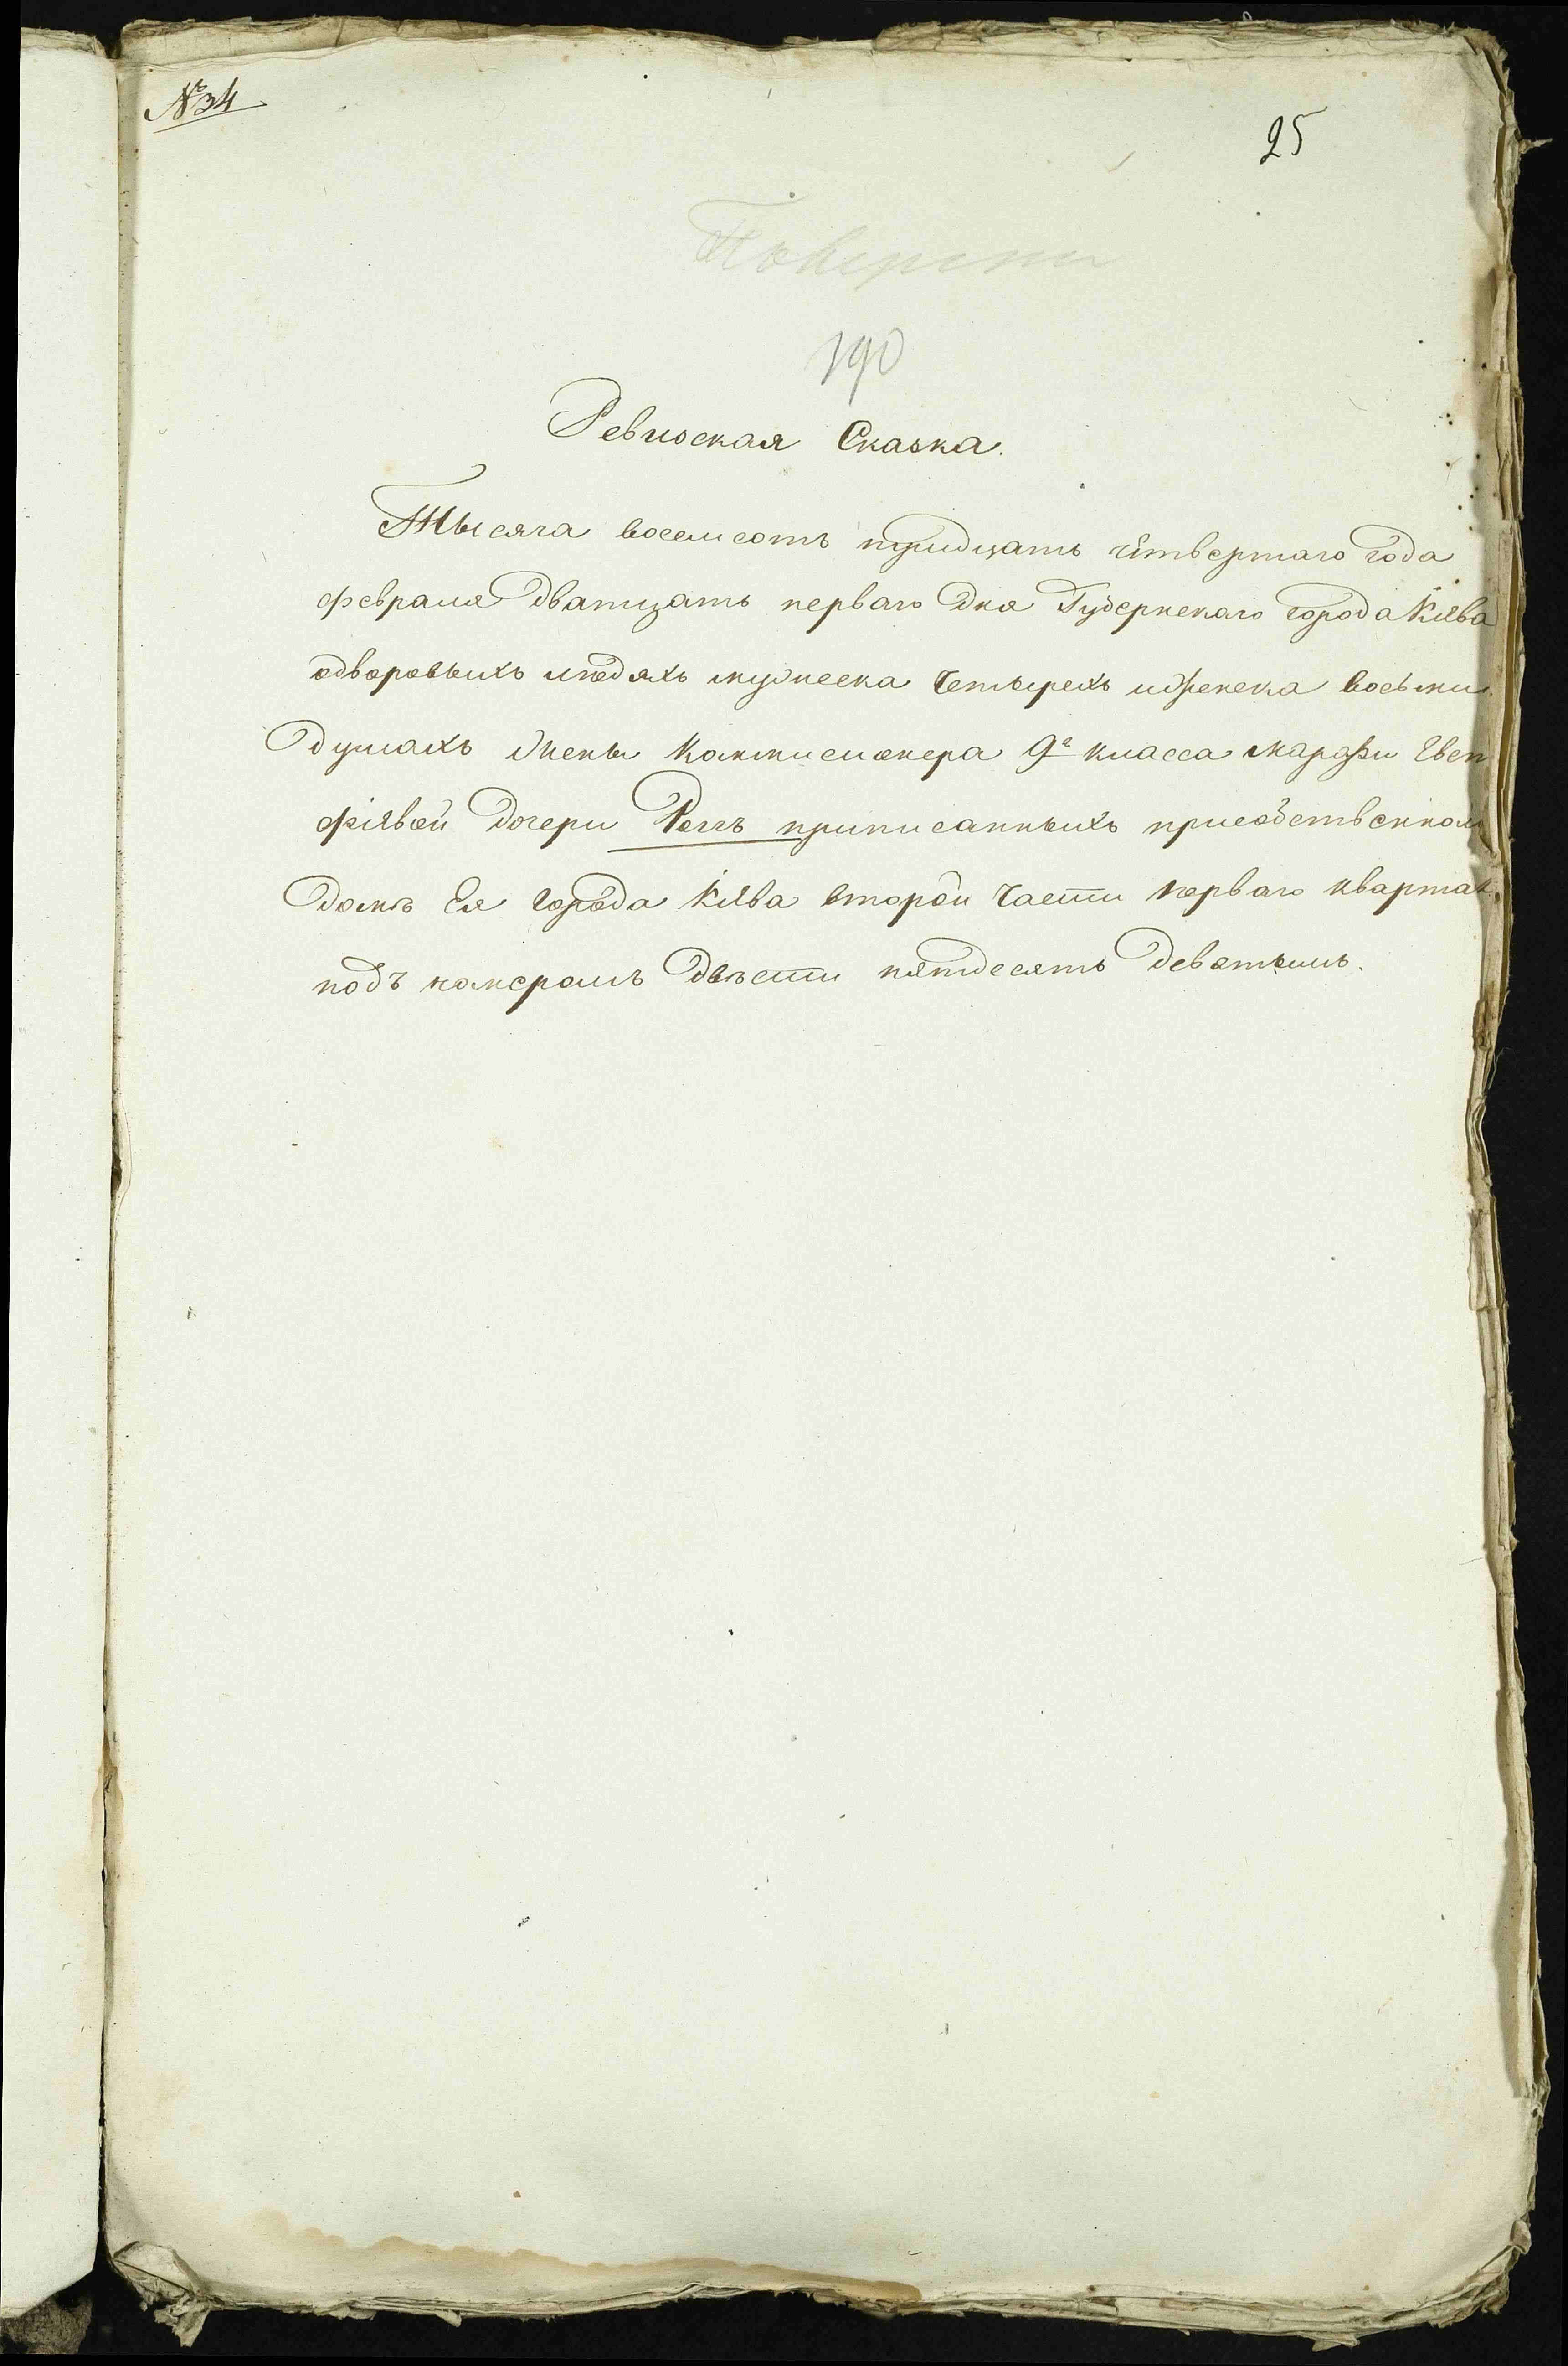 № 34
25
Поверены
190
Ревиская Сказка.
Тысяча восемсотъ тридцать четвертаго года
февраля дватцать перваго дня Губернскаго города Кіева
одворовыхъ людяхъ мужеска четырехъ иженска восьми
душахъ жены Коммисионера 9г класса Марфы Евсп
фіявой дочери приписанныхъ присобственном
домѣ Ея города Кіева второй части перваго квартал
подъ номеромъ двѣсти пятдесятъ деватымъ.